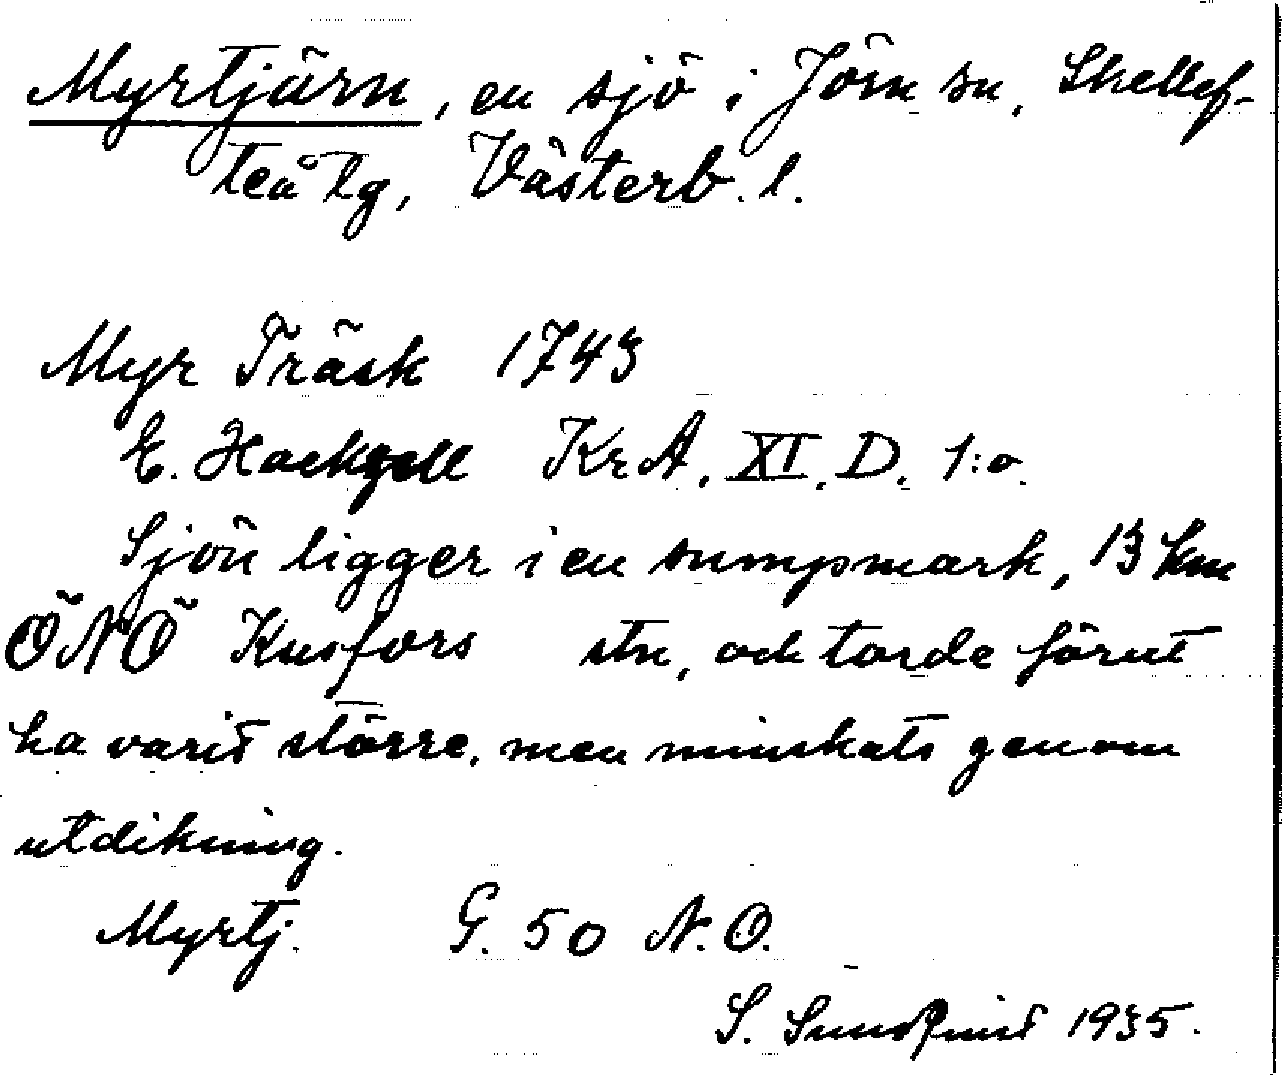 Myrtjärn, en sjö i Jörn sn, Skellef-
teå lg, Västerb. l.
Myr Träsk 1743
E. Hackzell KrA. XI. D. 1:a.
Sjön ligger i en sumpmark, 13 km
ÖNÖ Kusfors stn, och torde förut
ha varit större, men minskats genom
utdikning.
Myrtj. G. 50 N.O.
S. Sundqvist 1935.